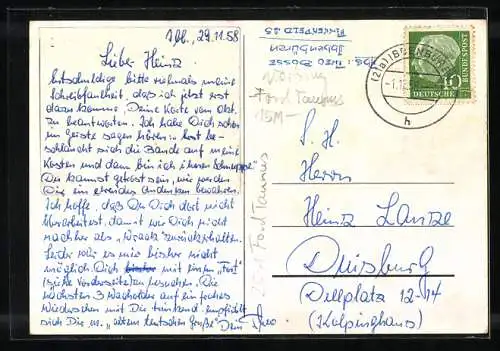 Ibb., 29.11.58
Lieber Heinz
Entschuldige bitte vielmals meine
Schreibfaulheit, daß ich jetzt erst
dazu komme, Deine Karte vom Okt.
zu beantworten. Ich habe Dich schon
im Geiste sagen hören: erst be-
sich die Bande auf meine
Kosten und dann bin ich ihnen
Du kannst getrost sein, wir werden
Dir ein ehrendes Andenken bewahren.
Ich hoffe, daß Du Dich dort nicht
überarbeitest, damit wir Dich nicht
nachher als "Wrack" zurückerhalten.
Leider war es mir bisher nicht
möglich, Dich mit einem "Ford"
(siehe Vorderseite) zu besuchen. Die
nächsten 3 Wacholder auf ein frohes
Wiedersehen mit Dir trinkend empfiehlt
sich Dir m. "altem teutschen Gruße" Dein Theo
Abs.: Theo Bosse
Ibbenbüren
Ford Taunus
15M-
Ford Taunus
(21a) IBBENBÜREN
h
10
DEUTSCHE BUNDESPOST
S. H.
Herrn
Heinz Lantze
Duisburg
Dellplatz 12-14
(Kolpinghaus)